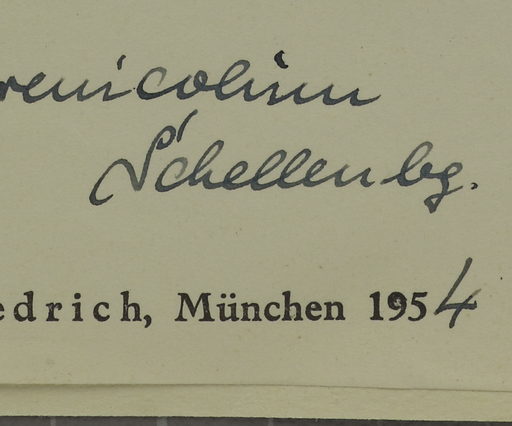 renicolinum
Schellenbg.
edrich, München 1954